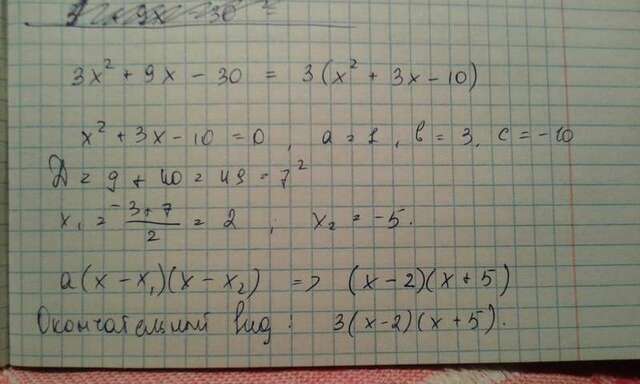 3x² + 9x - 30 = 3(x² + 3x - 10)
x² + 3x - 10 = 0, a = 1, b = 3, c = -10
D = 9 + 40 = 49 = 7²
x₁ = (-3+7)/2 = 2; x₂ = -5.
a(x - x₁)(x - x₂) => (x - 2)(x + 5)
Окончательный вид: 3(x-2)(x+5).